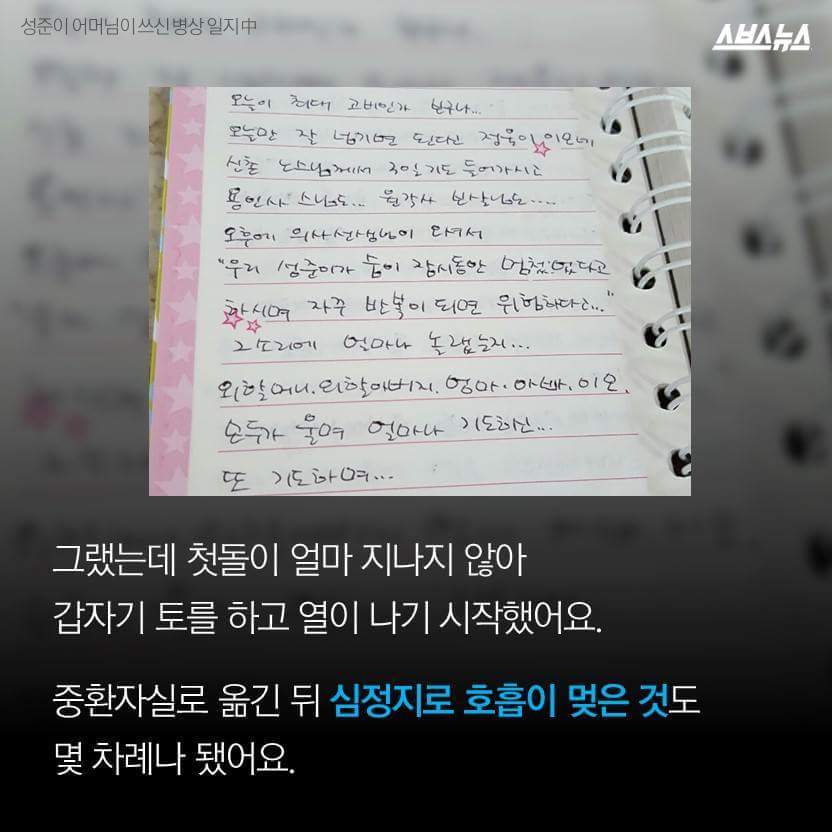 성준이 어머님이 쓰신 병상 일지 中
스브스뉴스
오늘이 최대 고비인가 보구나...
오늘만 잘 넘기면 된다신 정욱이 이모네
신촌 노스님께서 3일기도 들어가시고
용인사 스님도... 원각사 보살님도....
오후에 의사선생님이 오셔서
"우리 성준이가 숨이 잠시동안 멈췄었다고
하시며 자꾸 반복이 되면 위험하다고..."
그소리에 얼마나 놀랬는지...
외할머니. 외할아버지. 엄마. 아빠. 이모.
모두가 울며 얼마나 기도하신...
또 기도하며...
그랬는데 첫돌이 얼마 지나지 않아
갑자기 토를 하고 열이 나기 시작했어요.
중환자실로 옮긴 뒤 심정지로 호흡이 멎은 것도
몇 차례나 됐어요.